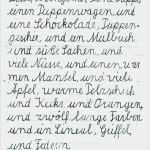 einen Puppenwagen und
eine Schockolade, Puppen-
geschir, und ein Mallbuch
und süße Sachen, und
viele Nüsse, und einen, war-
men Mantel, und viele
Apfel, warme Pelzschuh
und Keiks, und Orangen,
und zwölf lange Farben
und ein Lineal, Griffel
und Federn